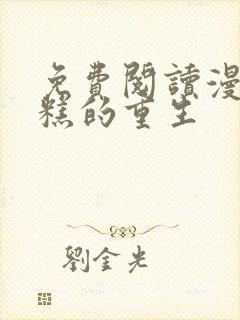 免費閱讀漫
糕的重生
劉金光